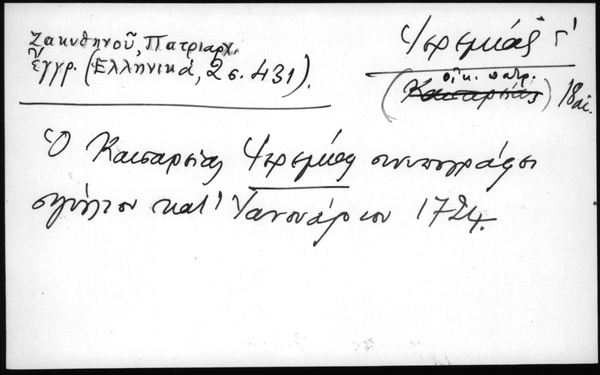 Ζακυθηνοῦ, Πατριαρχ.
Ἔγγρ. (Ἑλληνικά, 2 σ. 431).
Ἱερεμίας Γ'
οἰκ. πατρ.
(Καισαρείας) 18 αἰ.
Ὁ Καισαρείας Ἱερεμίας συνυπογράφει
σιγίλλιον κατ' Ἰανουάριον 1724.